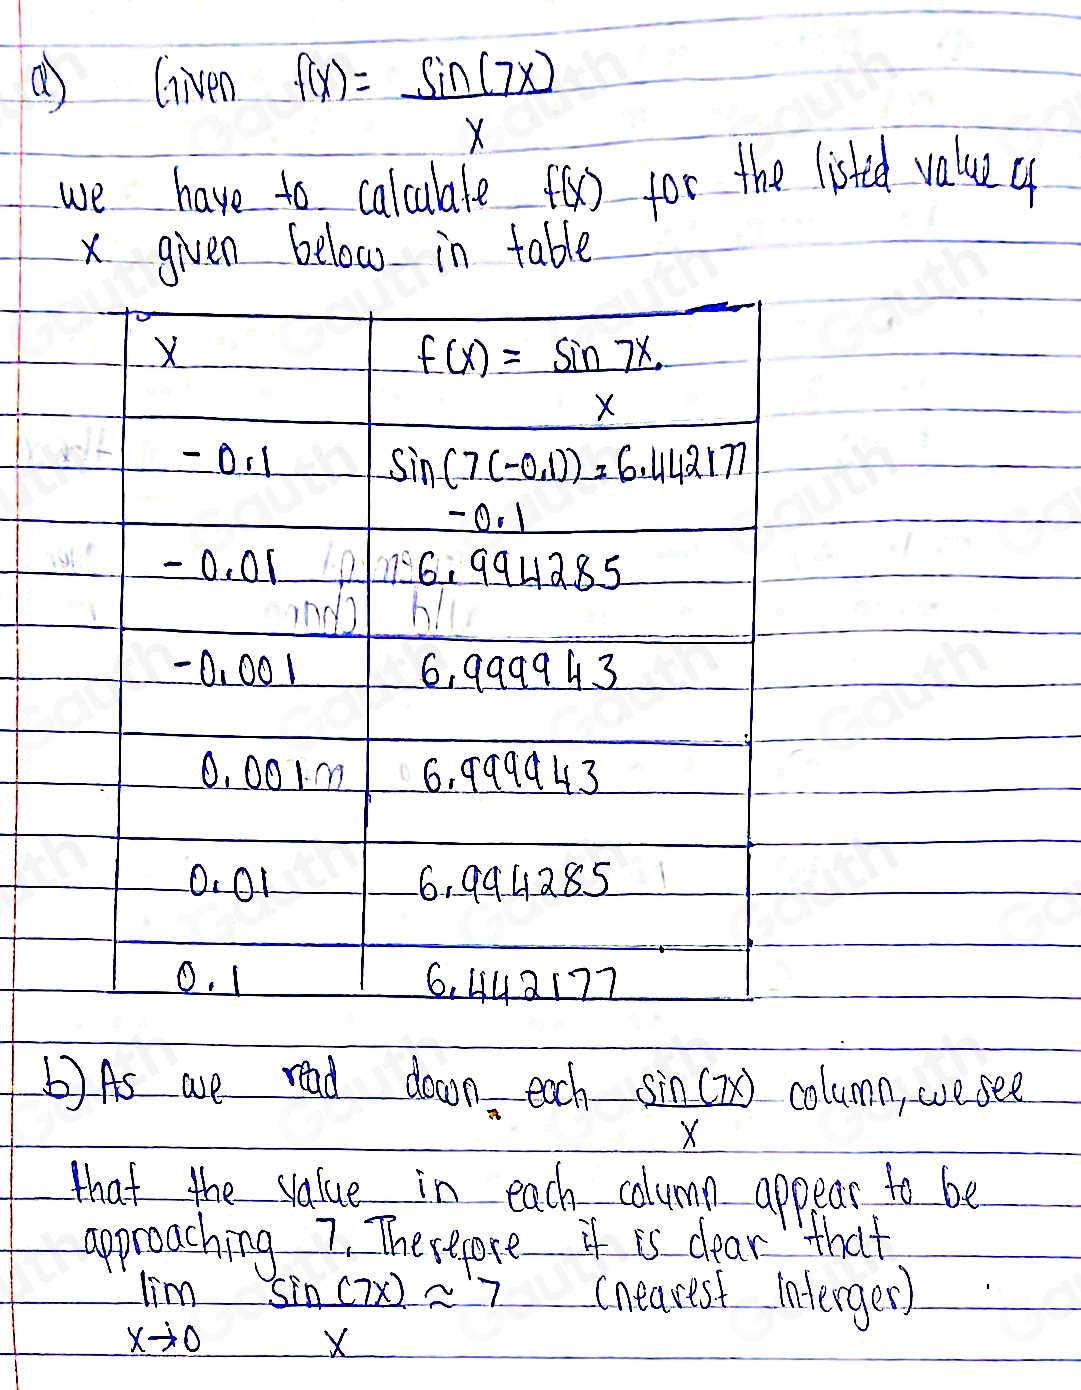 a) Given f(x) = sin(7x)
x
we have to calculate f(x) for the listed value of
x given below in table
x f(x) = sin 7x.
x
-0.1 sin(7(-0.1)) = 6.442177
-0.1
-0.01 6.994285
-0.001 6.999943
0.001 6.999943
0.01 6.994285
0.1 6.442177
b) As we read down each sin(7x) column, we see
x
that the value in each column appear to be
approaching 7. Therefore it is clear that
lim sin(7x) ≈ 7 (nearest interger)
x→0 x